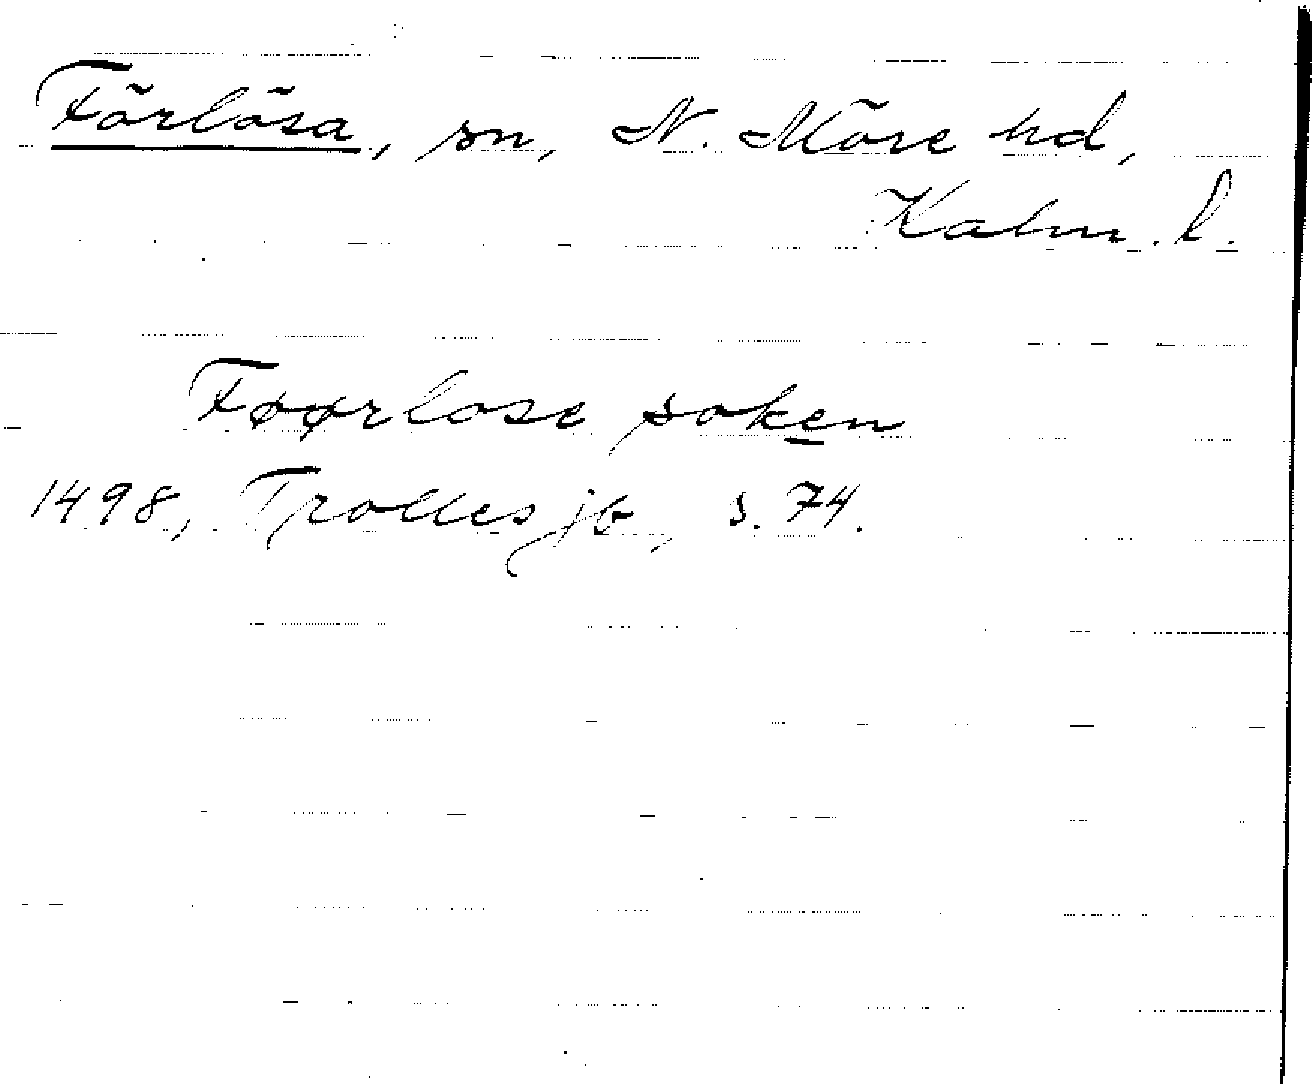 Förlösa, sn, N. Möre hd,
Kalm. l.
Føørlose soken
1498, Trolles jb, s. 74.